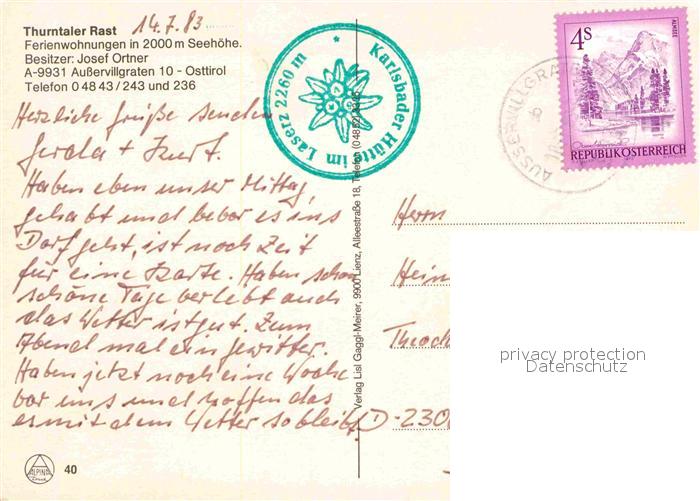 Thurntaler Rast 14.7.83
Ferienwohnungen in 2000 m Seehöhe.
Besitzer: Josef Ortner
A-9931 Außervillgraten 10 - Osttirol
Telefon 0 48 43 / 243 und 236
Herzliche Grüße senden
Gerola + Kurt.
Haben eben unser Mittag
gehabt und bevor es ins
Dorf geht, ist noch Zeit
für eine Karte. Haben schon
schöne Tage verlebt auch
das Wetter ist gut. Zum
Abend mal ein Gewitter.
Haben jetzt noch eine Woche
vor uns und hoffen das
es mit dem Wetter so bleibt.
ALPINA
Druck
40
Karlsbader Hütte im Laserz 2260 m
Verlag Lisl Gaggl-Meirer, 9900 Lienz, Alleestraße 18, Telefon (04852)
AUSSERVILLGRA
4S
ALMSEE
REPUBLIK ÖSTERREICH
Herrn
Hein
D-230
privacy protection
Datenschutz